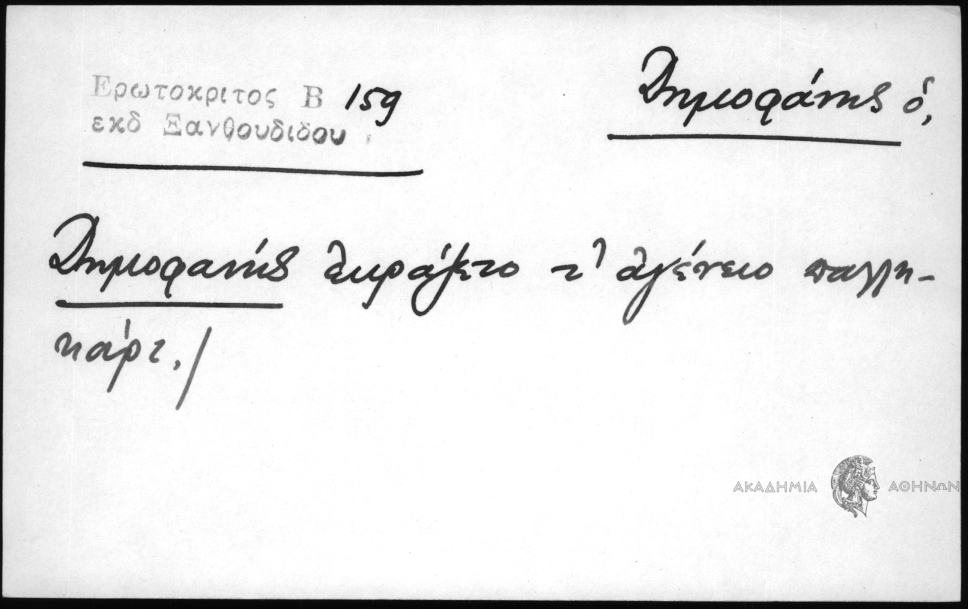 Ερωτοκριτος Β 159
εκδ Ξανθουδιδου
Δημοφάνης ὁ,
Δημοφανής ἐκράζετο τ' ἀγένειο παλλη-
κάρι./
ΑΚΑΔΗΜΙΑ ΑΘΗΝΩΝ